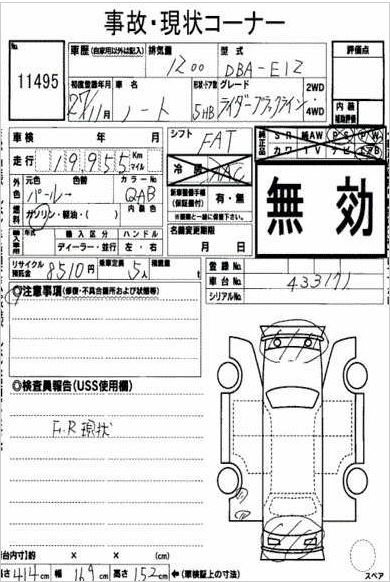 事故・現状コーナー
No.
11495
車歴 (自家用以外は記入)
排気量
1200
型式
DBA-E12
評価点
初度登録年月
27年11月
車名
ノート
形状・ドア数
5HB
グレード
ライダーブラックライン
2WD
・
4WD
内装
補助評価
車検 年 月
シフト
FAT
純正品
SR 純AW PS PW
カワ TV ナビ エアB
走行
19955
Km
マイル
冷房
AAC
無効
外色
元色 色替
パール→
カラーNo.
QAB
内装色
燃料
ガソリン・軽油・( )
新車整備手帳
(保証書付)
有・無
名義変更期限
月 日
輸入車
年式
輸入区分
ディーラー・並行
ハンドル
左・右
リサイクル預託金
8510円
乗車定員
5人
積載量
t
登録No.
車台No.
433171
シリアルNo.
◎注意事項 (修復・不具合箇所および状態等)
◎検査員報告(USS使用欄)
F.R現状
荷台内寸)約 × × (cm)
長さ 414cm 幅 169cm 高さ 152cm ←(車検証上の寸法)
スペア